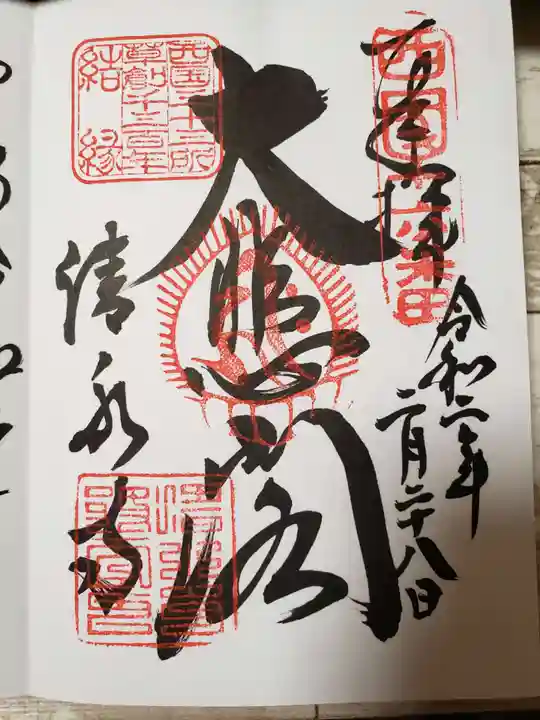 奉拝
西國十六番
令和二年
二月二十八日
大悲閣
西国三十三所
草創千三百年
結縁
清水寺